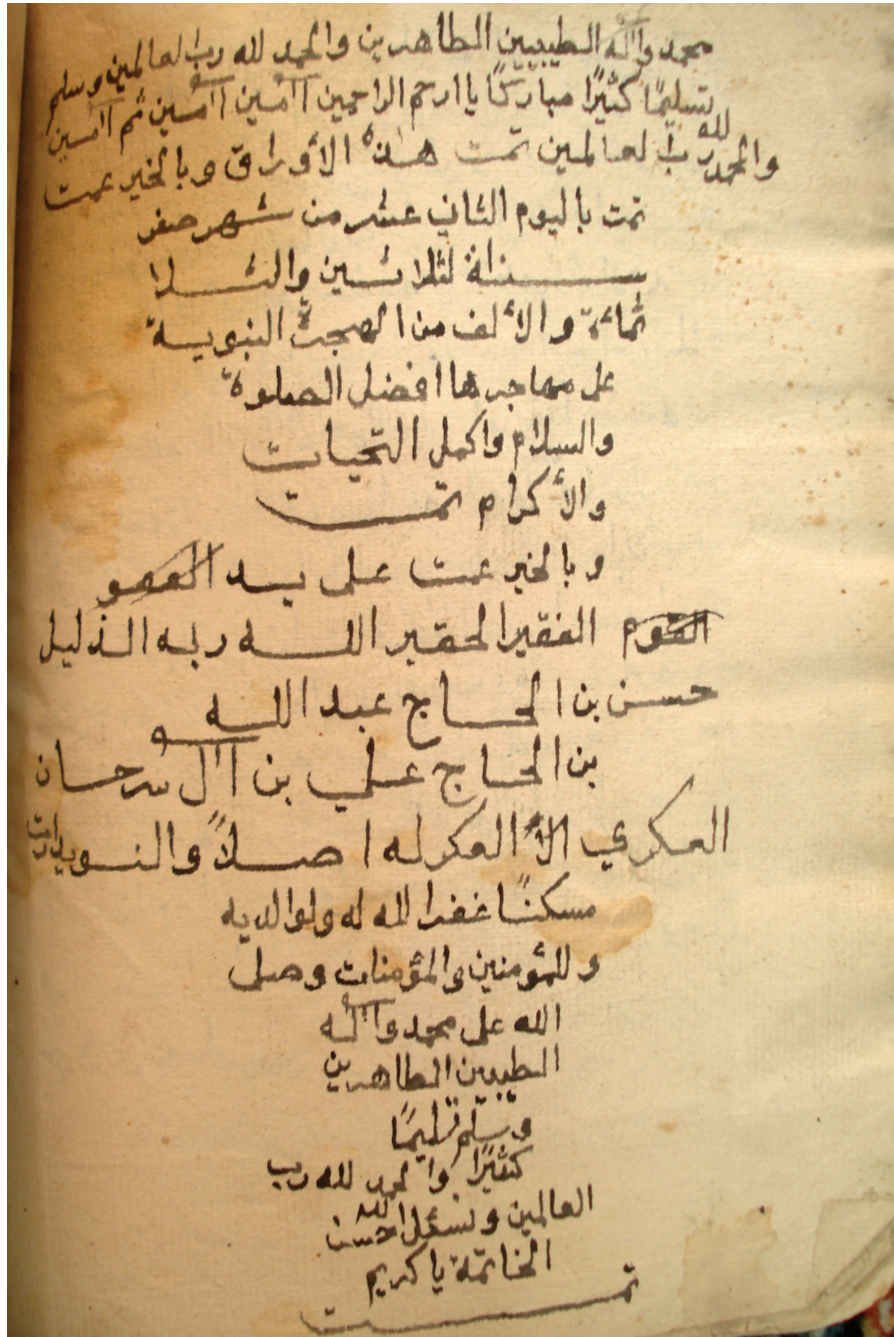 محمد وآله الطيبيين الطاهرين والحمد لله رب العالمين وسلم
تسليمًا كثيرًا مباركًا يا ارحم الراحمين اآمين اآمين ثم اآمين
والحمد لله رب العالمين تمت هذه الأوراق وبالخير عمت
تمت باليوم الثاني عشر من شهر صفر
سناة لثلاثين والثلا
ثمائة والألف من الهجرة النبوية
على مهاجرها افضل الصلوة
والسلام واكمل التحيات
والأكرام تمت
وبالخير عمت على يد
الفقير الحقير الله ربه الذليل
حسن بن الحاج عبد الله
بن الحاج علي بن اآل سرحان
العكري الأ العكر له اصلاً والنويدرات
مسكنًا غفر الله له ولوالديه
وللمؤمنين والمؤمنات وصلى
الله على محمد واآله
الطيبين الطاهرين
وسلم تسليمًا
كثيرًا والحمد لله رب
العالمين ونسئل الله حسن
الخاتمة يا كريم
تمت